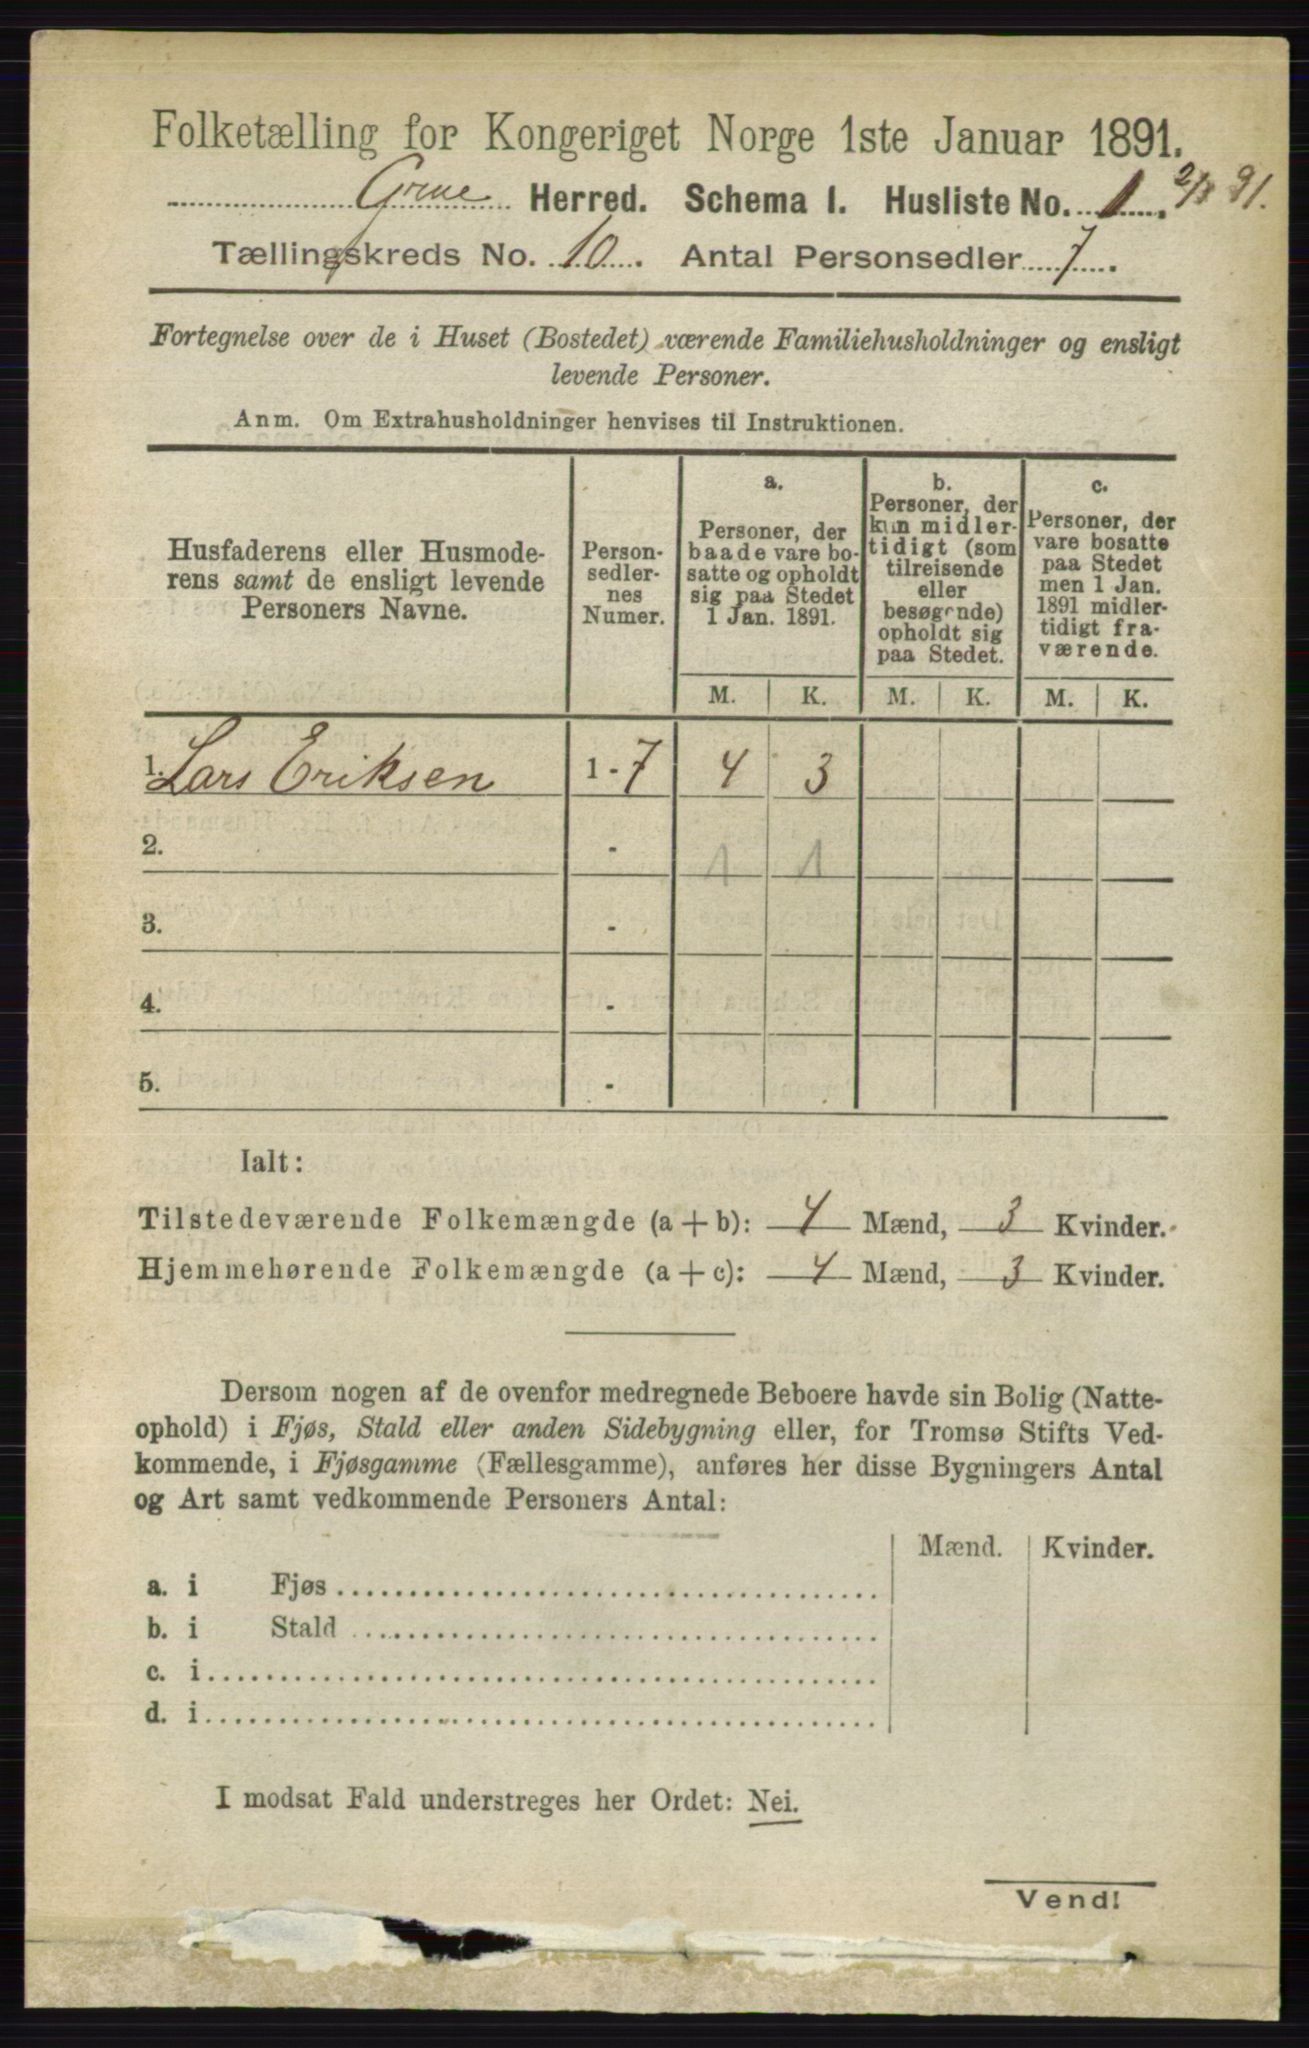 Folketælling for Kongeriget Norge 1ste Januar 1891.
Grue Herred. Schema I. Husliste No. 1. 2/3 91.
Tællingskreds No. 10. Antal Personsedler 7.
Fortegnelse over de i Huset (Bostedet) værende Familiehusholdninger og ensligt
levende Personer.
Anm. Om Extrahusholdninger henvises til Instruktionen.
Husfaderens eller Husmode-
rens samt de ensligt levende
Personers Navne.
Person-
sedler-
nes
Numer.
a.
Personer, der
baade vare bo-
satte og opholdt
sig paa Stedet
1 Jan. 1891.
b.
Personer, der
kun midler-
tidigt (som
tilreisende
eller
besøgende)
opholdt sig
paa Stedet.
c.
Personer, der
vare bosatte
paa Stedet
men 1 Jan.
1891 midler-
tidigt fra-
værende.
M. K. M. K. M. K.
1. Lars Eriksen 1 - 7 4 3
2. - 1 1
3. -
4. -
5. -
Ialt:
Tilstedeværende Folkemængde (a + b): 4 Mænd, 3 Kvinder.
Hjemmehørende Folkemængde (a + c): 4 Mænd, 3 Kvinder.
Dersom nogen af de ovenfor medregnede Beboere havde sin Bolig (Natte-
ophold) i Fjøs, Stald eller anden Sidebygning eller, for Tromsø Stifts Ved-
kommende, i Fjøsgamme (Fællesgamme), anføres her disse Bygningers Antal
og Art samt vedkommende Personers Antal:
Mænd. Kvinder.
a. i Fjøs
b. i Stald
c. i
d. i
I modsat Fald understreges her Ordet: Nei.
Vend!